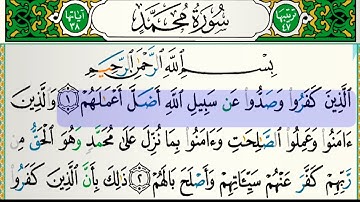 ترتيبها ٤٧ سُورَةُ مُحَمَّد آياتها ٣٨
بِسْمِ اللَّهِ الرَّحْمَٰنِ الرَّحِيمِ
الَّذِينَ كَفَرُوا وَصَدُّوا عَن سَبِيلِ اللَّهِ أَضَلَّ أَعْمَٰلَهُمْ ١ وَالَّذِينَ
ءَامَنُوا وَعَمِلُوا الصَّٰلِحَٰتِ وَءَامَنُوا بِمَا نُزِّلَ عَلَىٰ مُحَمَّدٍ وَهُوَ الْحَقُّ مِن
رَّبِّهِمْ كَفَّرَ عَنْهُمْ سَيِّـَٔاتِهِمْ وَأَصْلَحَ بَالَهُمْ ٢ ذَٰلِكَ بِأَنَّ الَّذِينَ كَفَرُوا